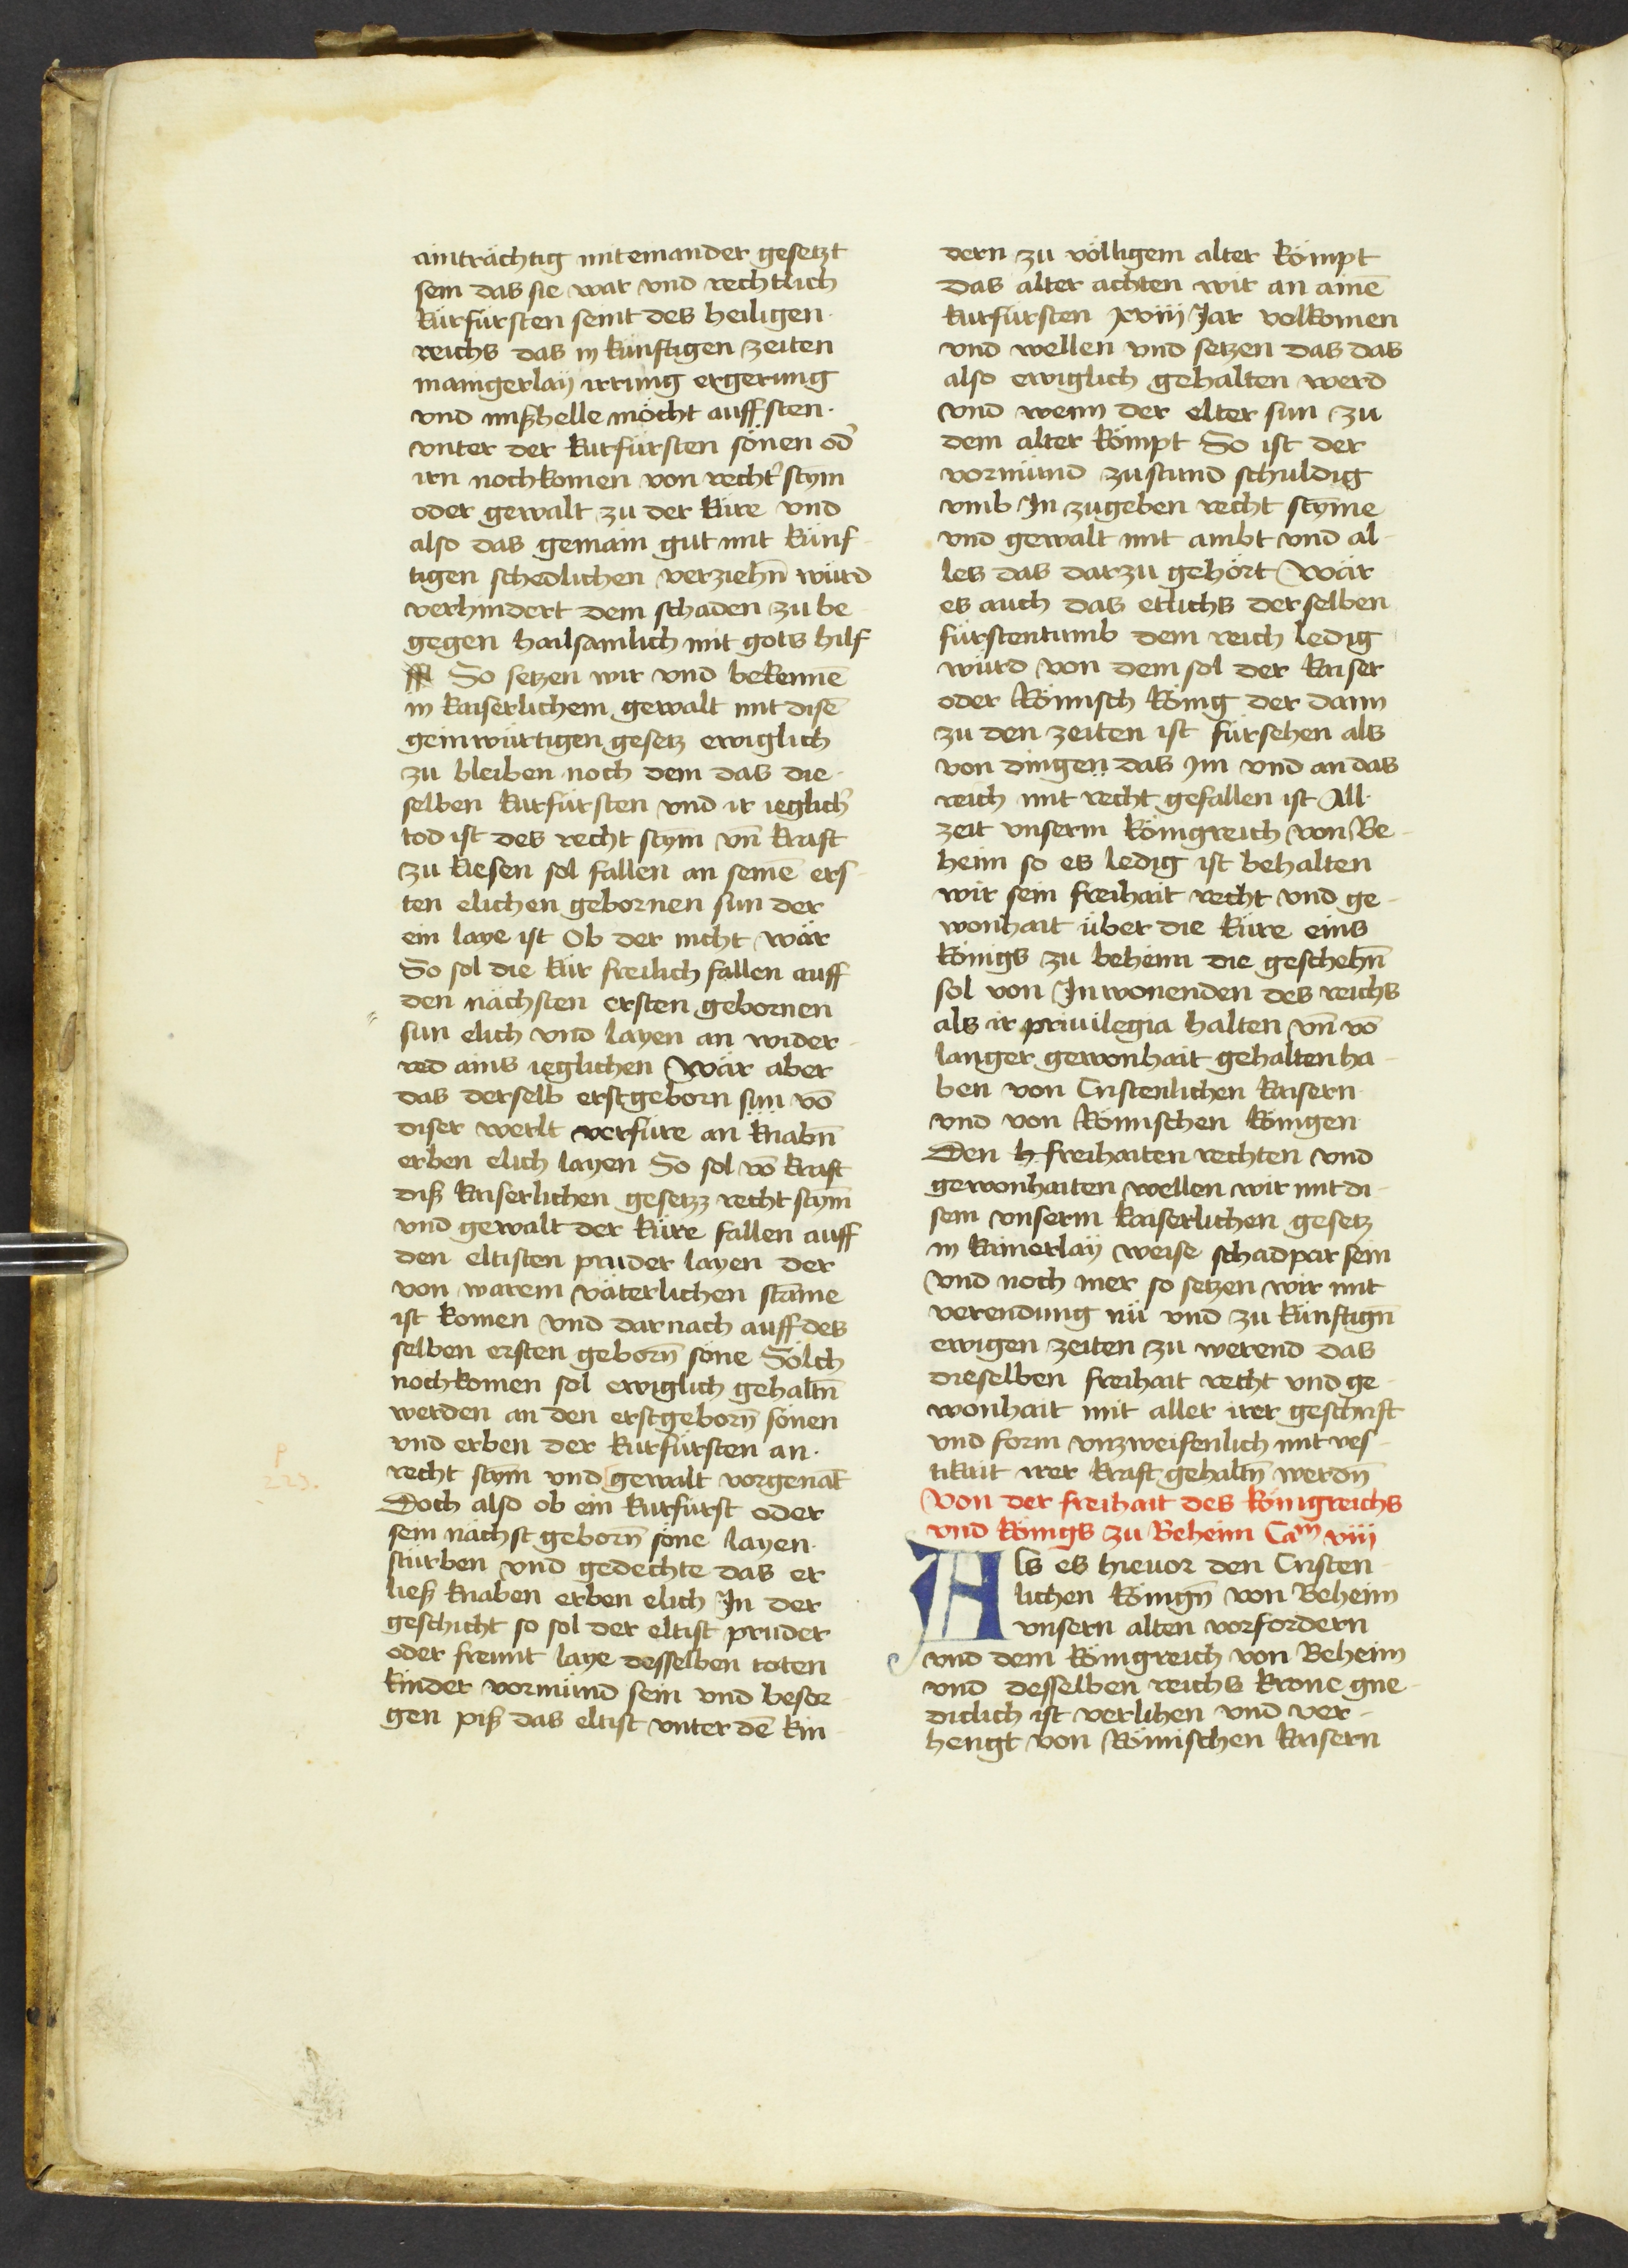 ainträchtig miteinander gesetzt
sein das sie war vnd rechtlich
kürfürsten seint des heiligen
reichs das in künftigen zeiten
maingerlay irrung ergerung
vnd mißhelle möcht auff sten
vnter der kurfürsten sönen od̉
irn nochkomen von recht̉ stym
oder gewalt zu der küre vnd
also das gemain gut mit künf
tigen schedlichen verziehn̄ würd
verhindert dem schaden zu be
gegen hailsamlich mit gots hilf
So setzen wir vnd bekennē
in kaiserlichem gewalt mit disē
geinwürtigen gesetz ewiglich
zu bleiben noch dem das die
selben kurfürsten vnd ir ieglich̉
tod ist des recht stym vn̄ kraft
zu kiesen sol fallen an seinē ers
ten elichen gebornen sun der
ein laye ist Ob der nicht wär
So sol die kür freilich fallen auff
den nächsten ersten gebornen
sun elich vnd layen an wider
red ains ieglichen Wär aber
das derselb erstgeborn sun vō
diser werlt verfüre an knabn̄
erben elich layen So sol vō kraft
diß kaiserlichen gesetzz recht stym̄
vnd gewalt der küre fallen auff
den eltisten pruder layen der
von warem väterlichen stam̄e
ist komen vnd darnach auff des
selben ersten geborn̄ söne Sölch
nochkomen sol ewiglich gehaltn̄
werden an den erstgeborn̄ sönen
vnd erben der kurfürsten an
recht stym̄ vnd gewalt vorgenāt
Doch also ob ein kurfürst oder
sein nächst geborn̄ söne layen
stürben vnd gedechte das er
ließ knaben erben elich In der
geschicht so sol der eltist pruder
oder freunt laye desselben toten
kinder vormünd sein vnd besor
gen piß das eltist vnter dē kin
223.
dern zu völligem alter kömpt
das alter achten wir an ainē
kurfürsten xviij Jar volkomen
vnd wellen vnd setzen das das
also ewiglich gehalten werd
vnd wenn der elter sun zu
dem alter kömpt So ist der
vormünd zustund schuldig
vmb In zugeben recht stym̄e
vnd gewalt mit ambt vnd al
les das darzu gehört Wär
es auch das etlichs derselben
fürstentumb dem reich ledig
würd von dem sol der kaiser
oder Römisch König der dann
zu den zeiten ist fürsehen als
von dingen das im vnd an das
reich mit recht gefallen ist All
zeit vnserm königreich von Be
heim so es ledig ist behalten
wir sein freihait recht vnd ge
wonhait über die küre eins
königs zu beheim die geschehn̄
sol von Inwonenden des reichs
als ir priuilegia halten vn̄ vō
langer gewonhait gehalten ha
ben von Cristenlichen kaisern
vnd von Römischen königen
Den freihaiten rechten vnd
gewonhaiten wellen wir mit di
sem vnserm kaiserlichen gesetz
in kainerlay weise schadpar sein
vnd noch mer so setzen wir mit
verendung nü vnd zu künftign̄
ewigen zeiten zu werend das
dieselben freihait recht vnd ge
wonhait mit aller irer geschrift
vnd form vnzweifenlich mit ves
tikait irer kraft gehaltn̄ werdn̄
Von der freihait des königreichs
vnd königs zu Beheim Caᵐ viij
Als es hieuor den Cristen
lichen könign̄ von Beheim
vnsern alten vorfordern
vnd dem königreich von Beheim
vnd desselben reichs krone gne
diclich ist verlihen vnd ver
hengt von Römischen kaisern